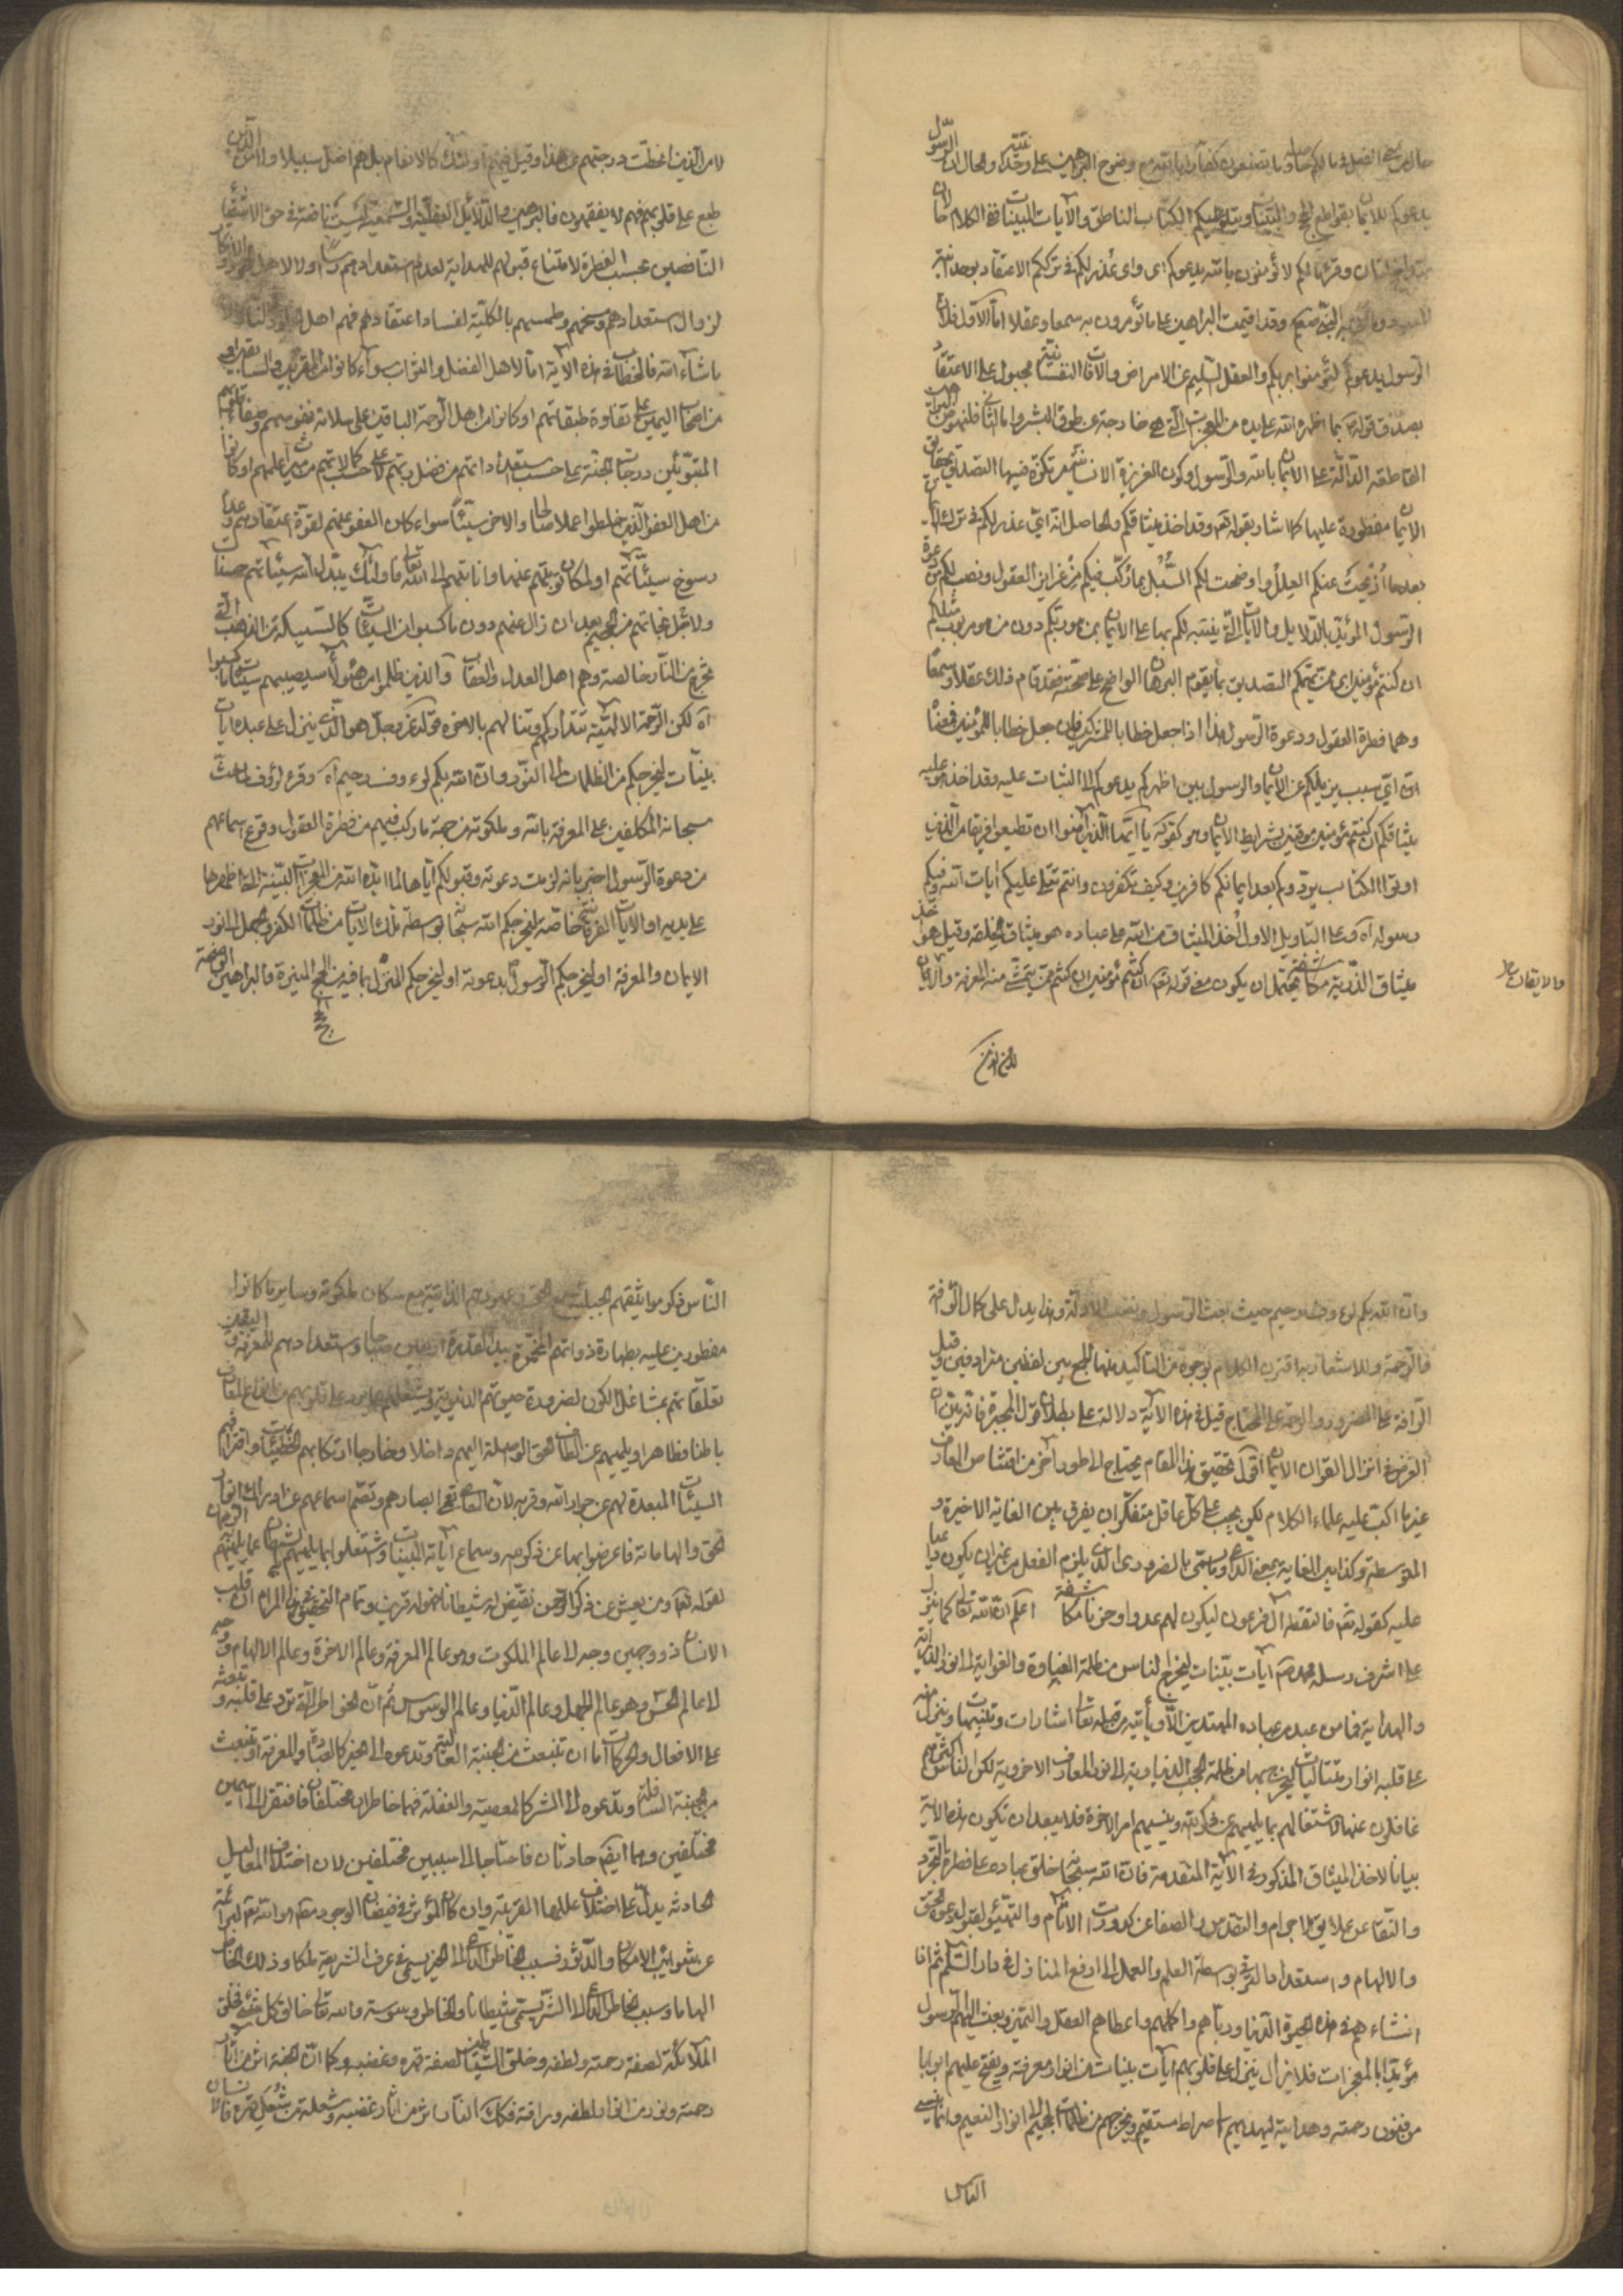 يدعوكم للايمان بقواطع الحجج والبينات ويتلو عليكم الكتاب الناطق والآيات البينات
وقرئ ما لكم لا تؤمنون بالله يدعوكم اى واى عذر لكم فى ترككم الاعتقاد بوحدانية
وقد اقيمت البراهين على ما تؤمرون به سمعا وعقلا اما الاول فلان
الرسول يدعوكم لتؤمنوا بربكم والعقل السليم عن الامراض والآفات النفسانية مجبول على الاعتقاد
بصدق قوله بما اظهره الله على يده من المعجزات التى هى خارجة عن طوق البشر واما الثانى فلنهوض البراهين
القاطعة الدالة على الايمان بالله والرسول وكون الغريزة الانسانية مركوزة فيها التصديق بحقايق
الايمان مفطورة عليها كما اشار بقوله تعـ وقد اخذ ميثاقكم والحاصل انه اى عذر لكم فى ترك الايمان
بعدما أزيحت عنكم العلل واوضحت لكم السُّبُل بما ركّب فيكم من غرايز العقول ونصب لكم من دعوة
الرسول المؤيد بالدلايل والآيات التى ينتبه لكم بها على الايمان بمن هو ربكم دون من هو مربوب مثلكم
ان كنتم مؤمنين اى ممن يمكنكم التصديق بما يقوم البرهان الواضح على صحته فقد قام ذلك عقلا وسمعا
وهما فطرة العقول ودعوة الرسول هذا اذا جعل خطابا للمشركين فان جعل خطابا للمؤمنين فمعناه
انه اى سبب يزيلكم عن الايمان والرسول بين اظهركم يدعوكم الى الثبات عليه وقد اخذ هو عليه
ميثاقكم ان كنتم مؤمنين موقنين بشرايط الايمان وهو كقوله يا ايها الذين آمنوا ان تطيعوا فريقا من الذين
اوتوا الكتاب يردوكم بعد ايمانكم كافرين وكيف تكفرون وانتم تتلى عليكم ايات الله وفيكم
رسوله آه وعلى التاويل الاول أخذ الميثاق من الله على عباده هو ميثاق الخلقة وقيل هو أخذ
ميثاق الذرية مكاشفة يحتمل ان يكون معنى قوله تعـ ان كنتم مؤمنين ان كنتم ممن يتمشى منه المعرفة والايمان
والايقان ظ
لا من الذين انحطت درجتهم عن هذا وقيل فيهم اولئك كالانعام بل هم اضل سبيلا ولا من الذين
طبع على قلوبهم فهم لا يفقهون فالبراهين والدلائل العقلية والسمعية ليست ناهضة فى حق الاشقيا
الناقصين بحسب الفطرة لامتناع قبولهم للهداية لعدم استعدادهم
لزوال استعدادهم ومسخهم وطمسهم بالكلية لفساد اعتقادهم فهم اهل
ما شاء الله فالخطاب فى هذه الآية اما لاهل الفضل والثواب سواء كانوا من المقربين والسابقين او
من اصحاب اليمين على تفاوة طبقاتهم او كانوا من اهل الرحمة الباقين على سلامة نفوسهم وصفاء قلوبهم
المتبوئين درجات الجنة على حسب استعداداتهم من فضل ربهم لا على حسب كمالاتهم من ميراث اعمالهم او كانوا
من اهل العفو الذين خلطوا عملا صالحا والاخر سيئًا سواء كان العفو عنهم لقوة اعتقادهم وعدم
رسوخ سيئاتهم او لمكان توبتهم عنها وانابتهم الى الله تعالى فاولئك يبدل الله سيئاتهم حسنات
ولاجل نجاتهم من الجحيم بعد ان زال عنهم درن ما كسبوا من السيئات كالسبيكة من الذهب التى
تخرج من النار خالصة وهم اهل العدل والعقاب والذين ظلموا من هؤلاء سيصيبهم سيئات ما كسبوا
آه لكن الرحمة الالهية تتداركهم وتنالهم بالاخره قوله عز وجل هو الذى ينزل على عبده آيات
بينات ليخرجكم من الظلمات الى النور وان الله بكم لرءوف رحيم آه وقرئ لرؤف
سبحانه المكلفين على المعرفة بالله وملكوته من جهة ما ركب فيهم من فطرة العقول وقوع اسماعهم
من دعوة الرسول اخبر بانه لزمت دعوته وقبولكم اياها لما ايده الله من المعجزات البينة التى اظهرها
على يديه او الآيات القرآنية خاصة ليخرجكم الله سبحانه بواسطة تلك الآيات من ظلمات الكفر والجهل الى نور
الايمان والمعرفة او ليخرجكم الرسول بدعوته او ليخرجكم المنزل بما فيه من الحجج المنيرة والبراهين الواضحة
وان الله بكم لرءوف رحيم حيث بعث الرسول ونصب الادلة وهذا يدل على كمال الرأفة
والرحمة وللاشعار به اقترن الكلام بوجوه من التاكيد منها الجمع بين لفظين مترادفين وقيل
الرأفة على المضرور والرحمة على المحتاج قيل فى هذه الآية دلالة على بطلان قول المجبرة فانه بيّن ان
الغرض فى انزال القرآن الايمان اقول تحقيق هذا المقام يحتاج الى طور آخر من اقتناص المعارف
غير ما اكب عليه علماء الكلام لكن يجب على كل عاقل متفكر ان يفرق بين الغاية الاخيرة و
المتوسطة وكذا بين الغاية بمعنى الداعى وما يسمى بالضرورى الذى يلزم الفعل من غير ان يكون داعيا
عليه كقوله تعـ فالتقطه آل فرعون ليكون لهم عدوا وحزنا مكاشفة اعلم ان الله تعالى كما ينزل
على اشرف رسله محمد صم آيات بينات ليخرج الناس من ظلمة الغباوة والغواية الى نور الدراية
والهداية فما من عبد من عباده المهتدين الا ويأتيه من قبله تعالى اشارات وتنبيهات وينزل منه
على قلبه انوار متتاليات ليخرج بها من ظلمة الحجب الدنياوية الى نور المعارف الاخروية لكن الناس اكثرهم
غافلون عنها لاشتغالهم بما يلهيهم عن ذكر ربهم وينسيهم امر الاخرة فلا يبعد ان تكون هذه الآية
بيانا لاخذ الميثاق المذكور فى الآية المتقدمة فان الله سبحانه خلق عباده على فطرة التجرد
والنقاء عن علايق الاجرام والتقدس والصفا عن كدورات الاثام والتهيؤ لقبول دعوة الحق
والالهام واستعداد الترقى بواسطة العلم والعمل الى ارفع المنازل فى دار السلام ثم لما
انشاءهم فى هذه الحيوة الدنيا ورباهم واكملهم واعطاهم العقل والتميز وبعث اليهم الرسول
مؤيدا بالمعجزات فلا يزال ينزل على قلوبهم آيات بينات من انوار معرفته ويفتح عليهم ابوابا
من فنون رحمته وهدايته ليهديهم الى صراط مستقيم ويخرجهم من ظلمات الجحيم الى انوار النعيم
الناس
مفطورين عليه بطهارة ذواتهم المخمرة بيد القدرة اربعين صباحا واستعدادهم للمعرفة واليقين
تعلقاتهم بمشاغل الكون لضرورة حيوتهم الدنيوية
باطنا وظاهرا ويلهيهم عن الطاف الحق الواصلة اليهم داخلا وخارجا ارتكابهم الخطيئات واقترافهم
السيئات المبعدة لهم عن جوار الله وقربه لان المعاصى تعمى ابصارهم وتصم اسماعهم عن ادراك انوار
الحق والهاماته فاعرضوا بها عن ذكر ربهم وسماع آياته البينات واشتغلوا بما يلهيهم الشيطان عما يلهمهم الرحمان
لقوله تعـ ومن يعش عن ذكر الرحمن نقيض له شيطانا فهو له قرين وتمام التحقيق فى هذا المرام ان قلب
الانسان ذو وجهين وجه الى عالم الملكوت وهو عالم المعرفة وعالم الاخرة وعالم الالهام ووجه
الى عالم الحس وهو عالم الجهل وعالم الدنيا وعالم الوسواس ثم ان الخواطر التى ترد على قلبه وتبعثه
على الافعال والحركات اما ان تنبعث من الجنبة العالية وتدعوه الى الخير كالعبادة والمعرفة او تنبعث
من الجنبة السافلة وتدعوه الى الشر كالمعصية والغفلة فهما خاطران مختلفان فافتقرا الى اسمين
مختلفين وهما ايضا حادثان فاحتاجا الى سببين مختلفين لان اختلاف المعاليل
الحادثة يدل على اختلاف عللها القريبة وان كان المؤثر فى فيضان الوجود
عن شوائب الامكان والدثور فسبب الخاطر الداعى الى الخير يسمى فى عرف الشريعة ملكا وذلك الخاطر
الهاما وسبب الخاطر الداعى الى الشر يسمى شيطانا والخاطر وسوسة والله تعالى خالق كل شئ فخلق
الملائكة لصفة رحمته ولطفه وخلق الشياطين لصفة قهره وغضبه وكما ان الجنة اثر من آثار
رحمته ونور من انوار لطفه ورأفته فكذلك النار اثر من آثار غضبه وشعلة من شُعَل قهره فالانسان